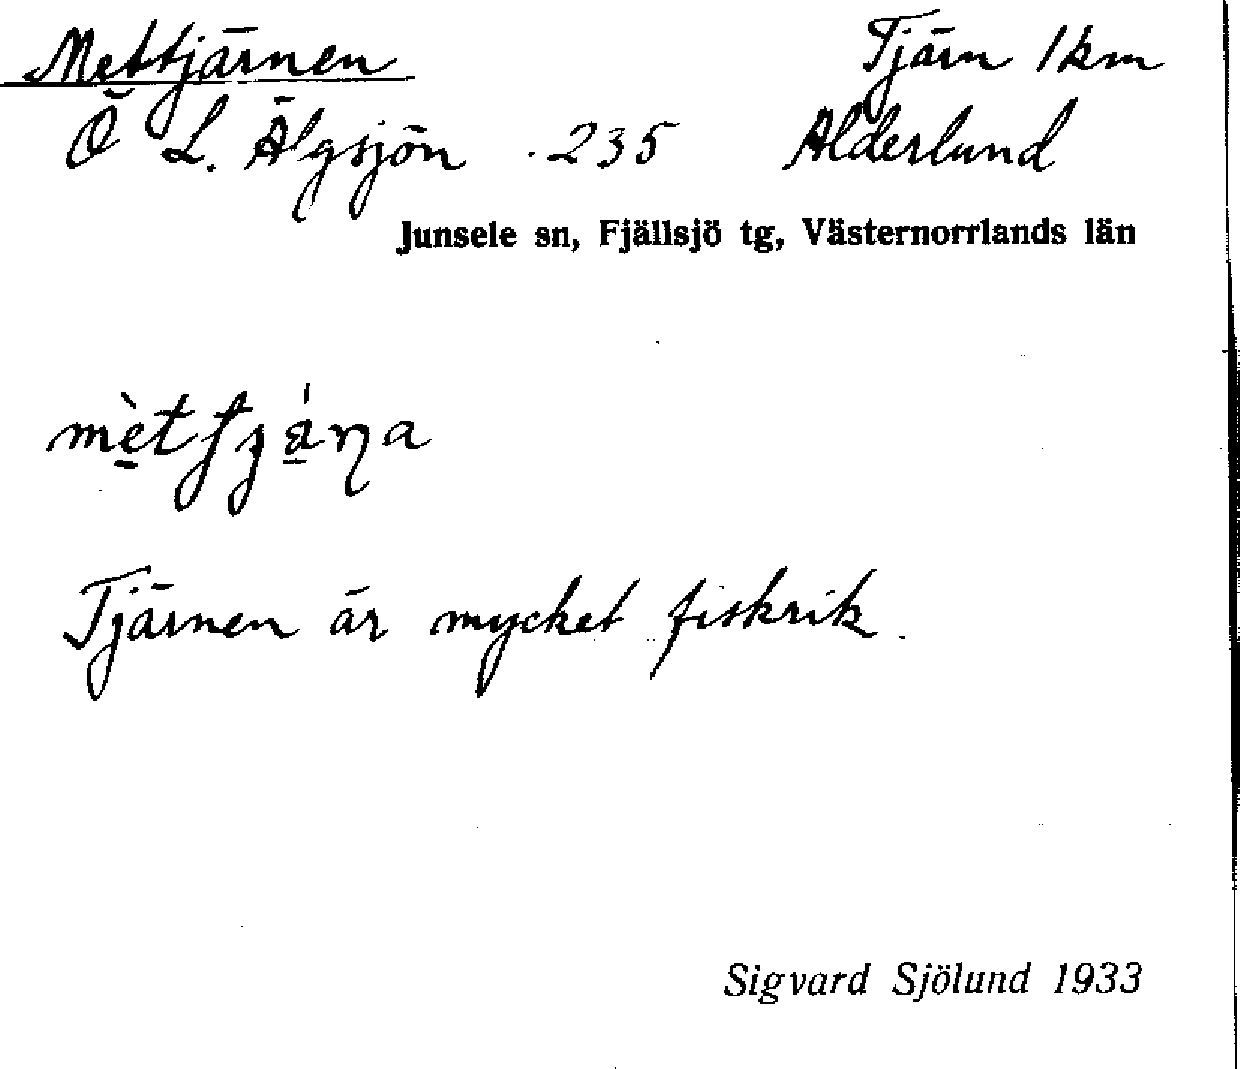 Mettjärnen Tjärn 1 km
Ö L. Älgsjön 235 Alderlund
Junsele sn, Fjällsjö tg, Västernorrlands län
Tjärnen är mycket fiskrik.
Sigvard Sjölund 1933